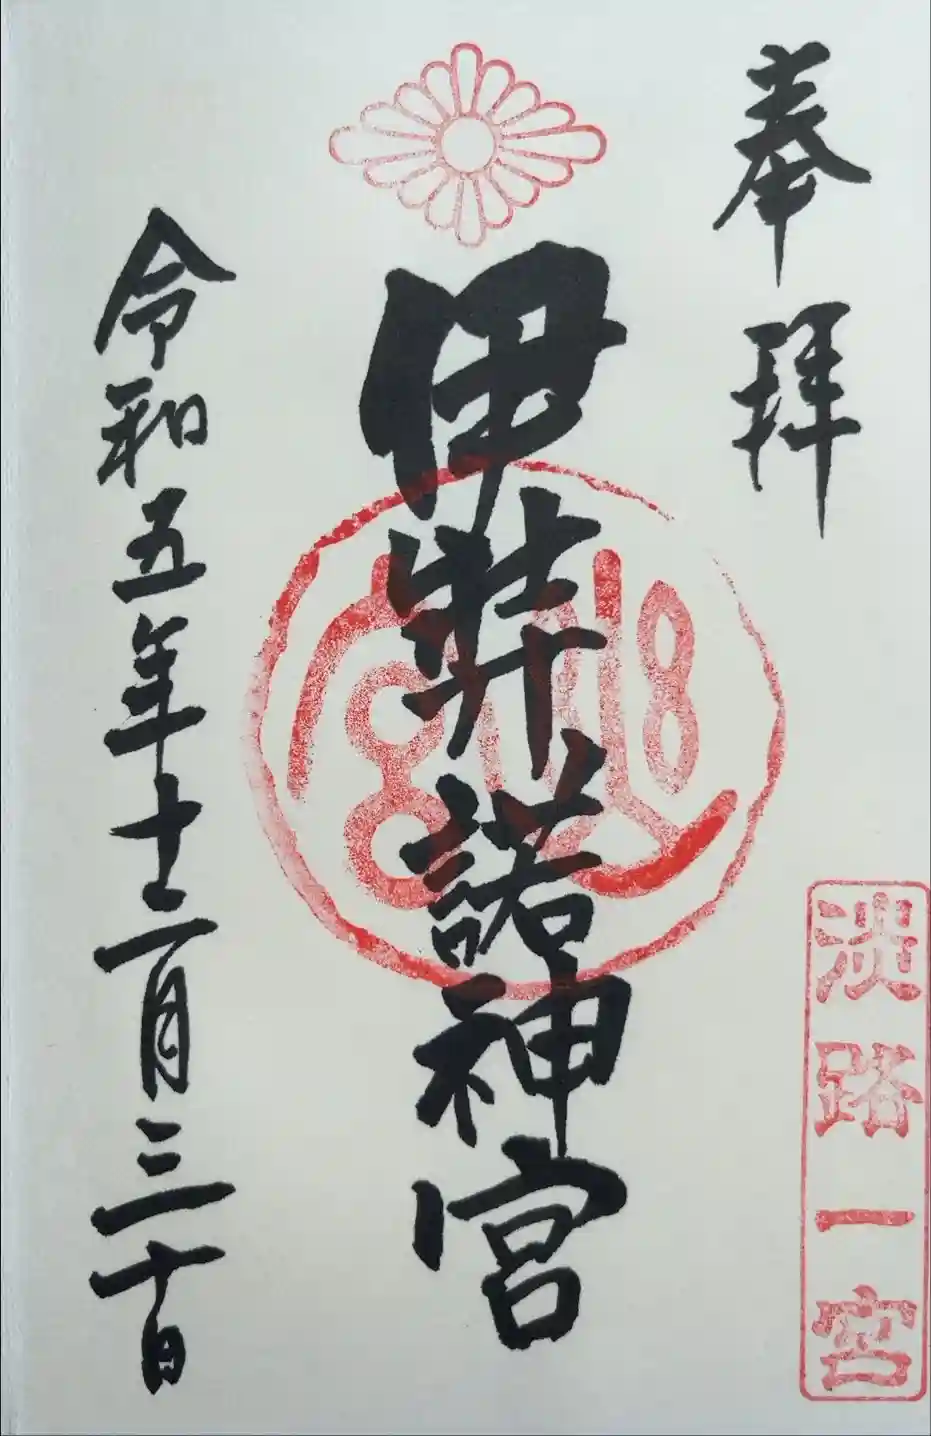 奉拝
淡路一宮
伊弉諾神宮
幽宮
令和五年十二月三十日